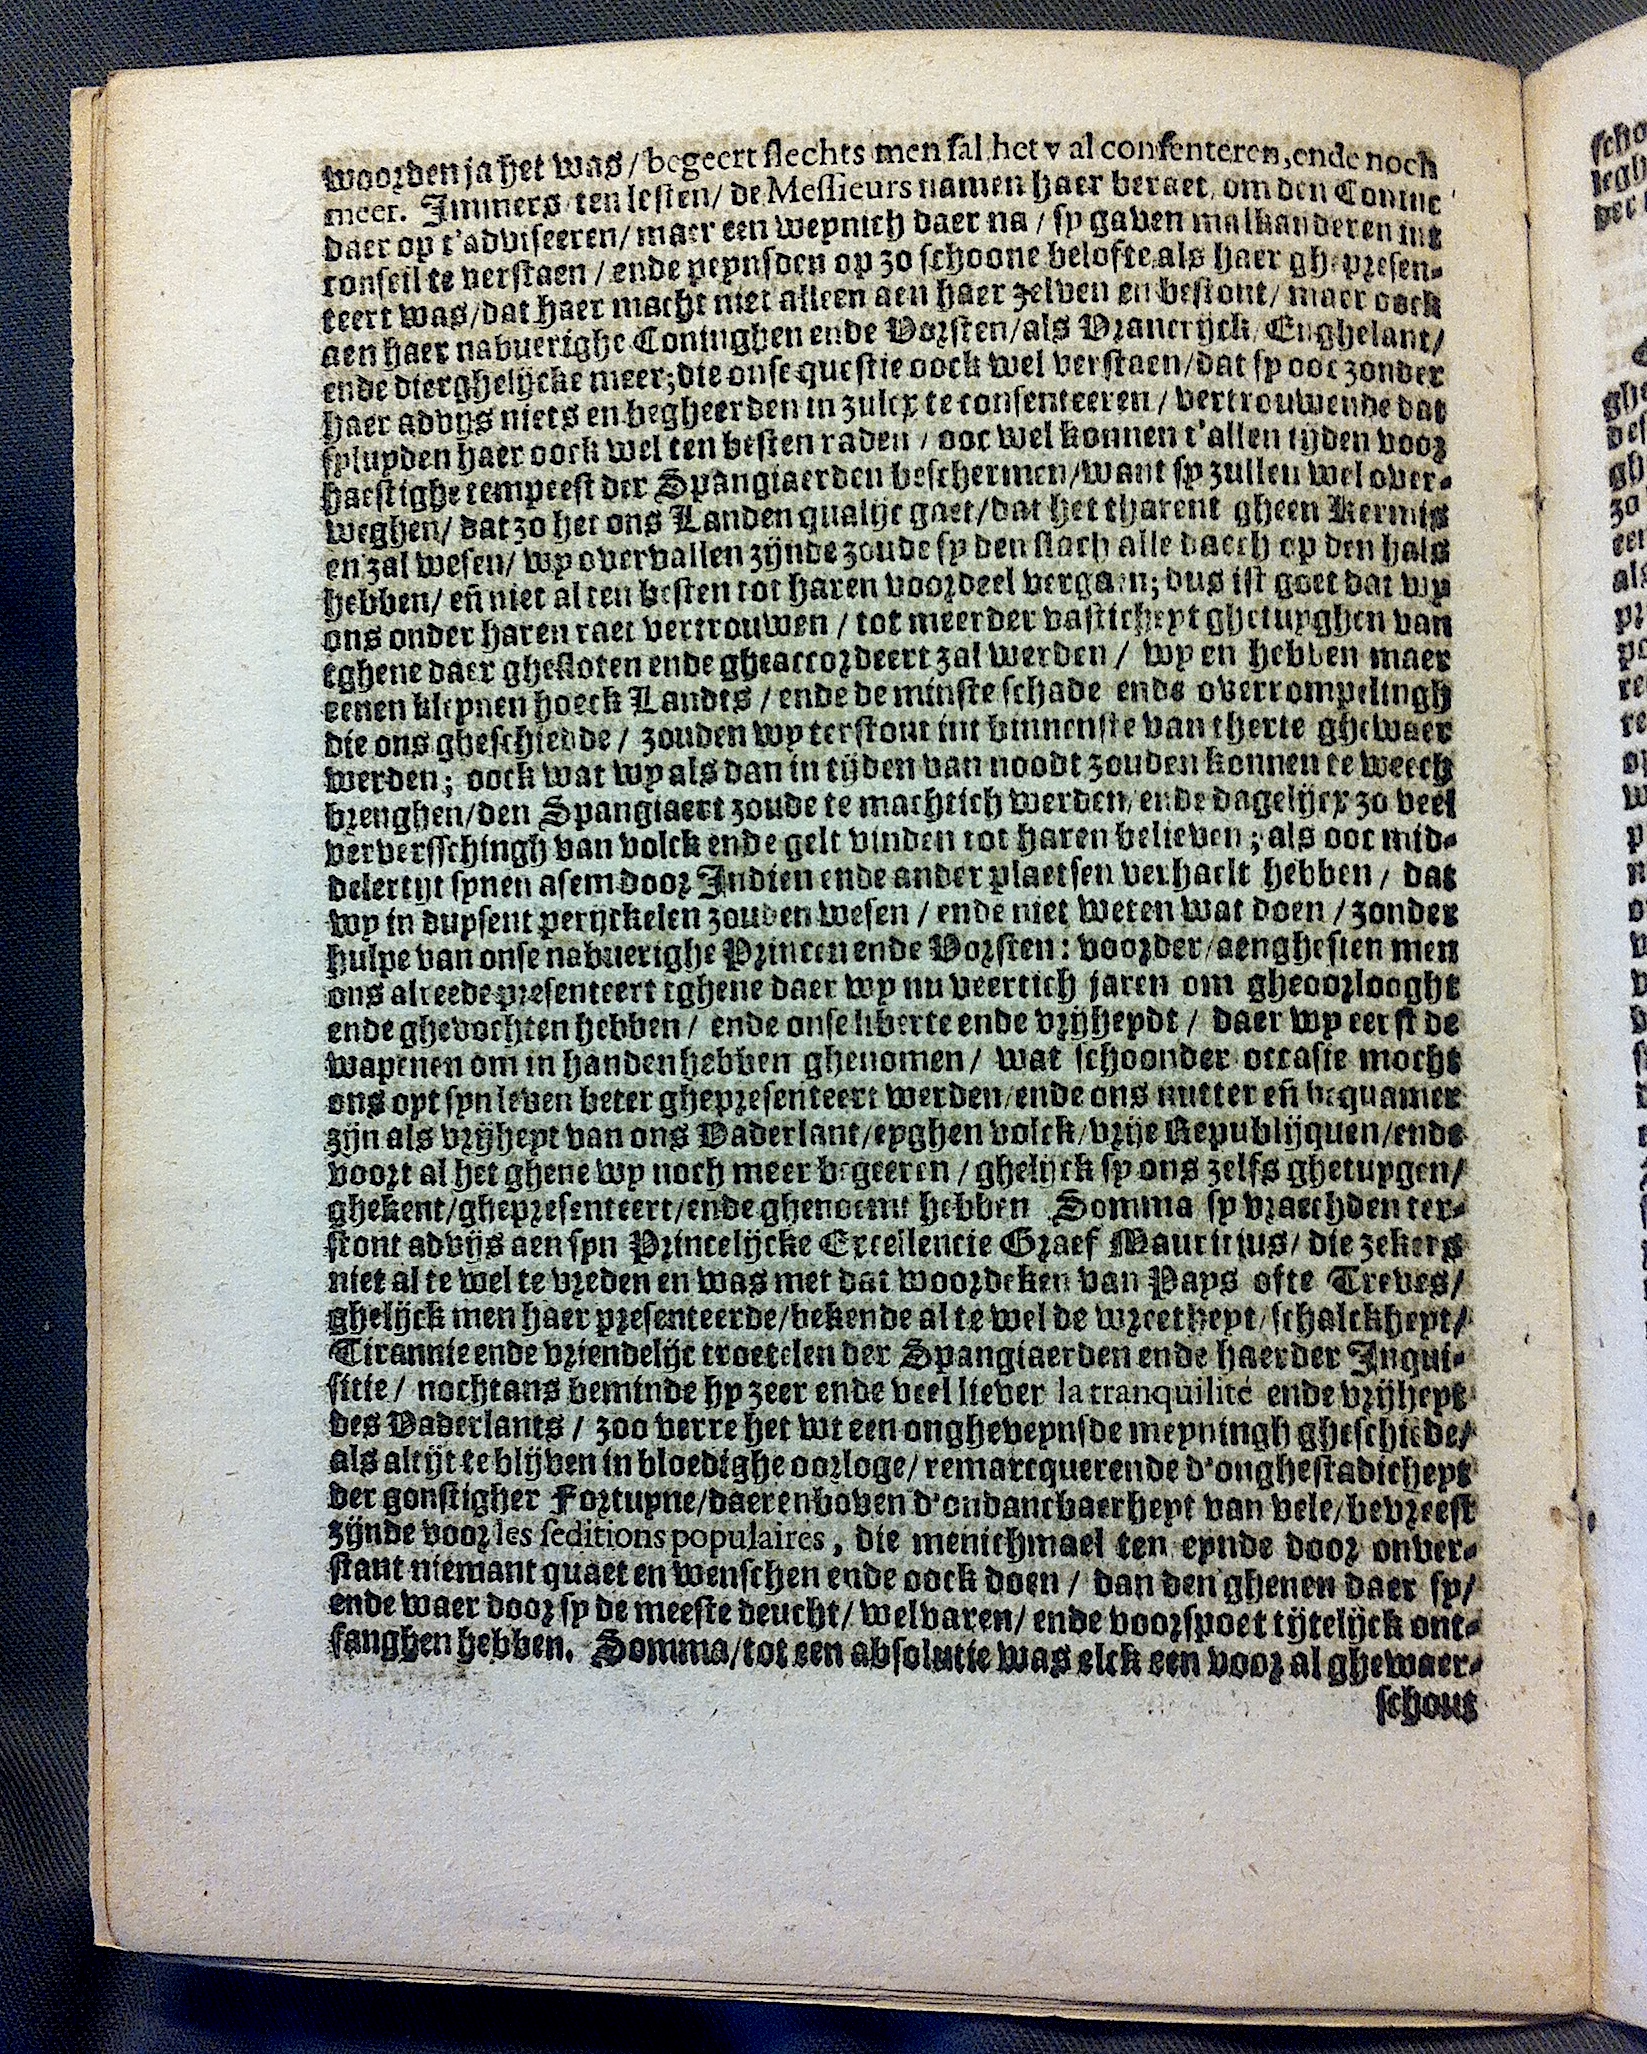 woorden ja het was / begeert slechts men sal het v al consenteren, ende noch
meer. Immers ten lesten / de Messieurs namen haer beraet, om den Coninc
daer op t'adviseeren / maer een weynich daer na / sy gaven malkanderen int
conseil te verstaen / ende peynsden op zo schoone belofte als haer ghepresen-
teert was / dat haer macht niet alleen aen haer zelven en bestont / maer oock
aen haer nabuerighe Coninghen ende Vorsten / als Vrancrijck / Enghelant /
ende dierghelijcke meer; die onse questie oock wel verstaen / dat sy ooc zonder
haer advijs niets en begheerden in zulcx te consenteeren / vertrouwende dat
sylupden haer oock wel ten besten raden / ooc wel konnen t'allen tijden voor
haestighe tempeest der Spangiaerden beschermen / want sy zullen wel over-
weghen / dat zo het ons Landen qualijc gaet / dat het tharent gheen Kermis
en zal wesen / wy overvallen zijnde zoude sy den slach alle daech op den hals
hebben / en̄ niet al ten besten tot haren voordeel vergaen; dus ist goet dat wy
ons onder haren raet vertrouwen / tot meerder vasticheyt ghetuyghen van
tghene daer ghesloten ende gheaccordeert zal werden / wy en hebben maer
eenen kleynen hoeck Landts / ende de minste schade ende overrompelingh
die ons gheschiedde / zouden wy terstont int binnenste van therte ghewaer
werden; oock wat wy als dan in tijden van noodt zouden konnen te weech
brenghen / den Spangiaert zoude te machtich werden / ende dagelijcx zo veel
ververschingh van volck ende gelt vinden tot haren believen; als ooc mid-
delertijt synen asem door Indien ende ander plaetsen verhaelt hebben / dat
wy in duysent perijckelen zouden wesen / ende niet weten wat doen / zonder
hulpe van onse nabuerighe Princen ende Vorsten: voorder / aenghesien men
ons alreede presenteert tghene daer wy nu veertich jaren om gheoorlooght
ende ghevochten hebben / ende onse liberte ende vrijheydt / daer wy eerst de
wapenen om in handen hebben ghenomen / wat schoonder occasie mocht
ons oyt syn leven beter ghepresenteert werden / ende ons nutter en̄ bequamer
zijn als vrijheyt van ons Vaderlant / eyghen volck / vrije Republijquen / ende
voort al het ghene wy noch meer begeeren / ghelijck sy ons zelfs ghetuygen /
ghekent / ghepresenteert / ende ghenoemt hebben Somma sy vraechden ter-
stont advijs aen syn Princelijcke Excellencie Graef Mauritius / die zekers
niet al te wel te vreden en was met dat woordeken van Pays ofte Treves /
ghelijck men haer presenteerde / bekende al te wel de wreetheyt / schalckheyt /
Tirannie ende vriendelijc troetelen der Spangiaerden ende haerder Inqui-
sitie / nochtans beminde hy zeer ende veel liever la tranquilité ende vrijheyt
des Vaderlants / zoo verre het wt een ongheveynsde meyningh gheschiede /
als altijt te blijven in bloedighe oorloge / remarcquerende d'onghestadicheyt
der gonstigher Fortuyne / daerenboven d'ondancbaerheyt van vele / bevreest
zijnde voor les seditions populaires, die menichmael ten eynde door onver-
stant niemant quaet en wenschen ende oock doen / dan den ghenen daer sy /
ende waer door sy de meeste deucht / welvaren / ende voorspoet tijtelijck ont-
fanghen hebben. Somma / tot een absolutie was elck een voor al ghewaer-
schout